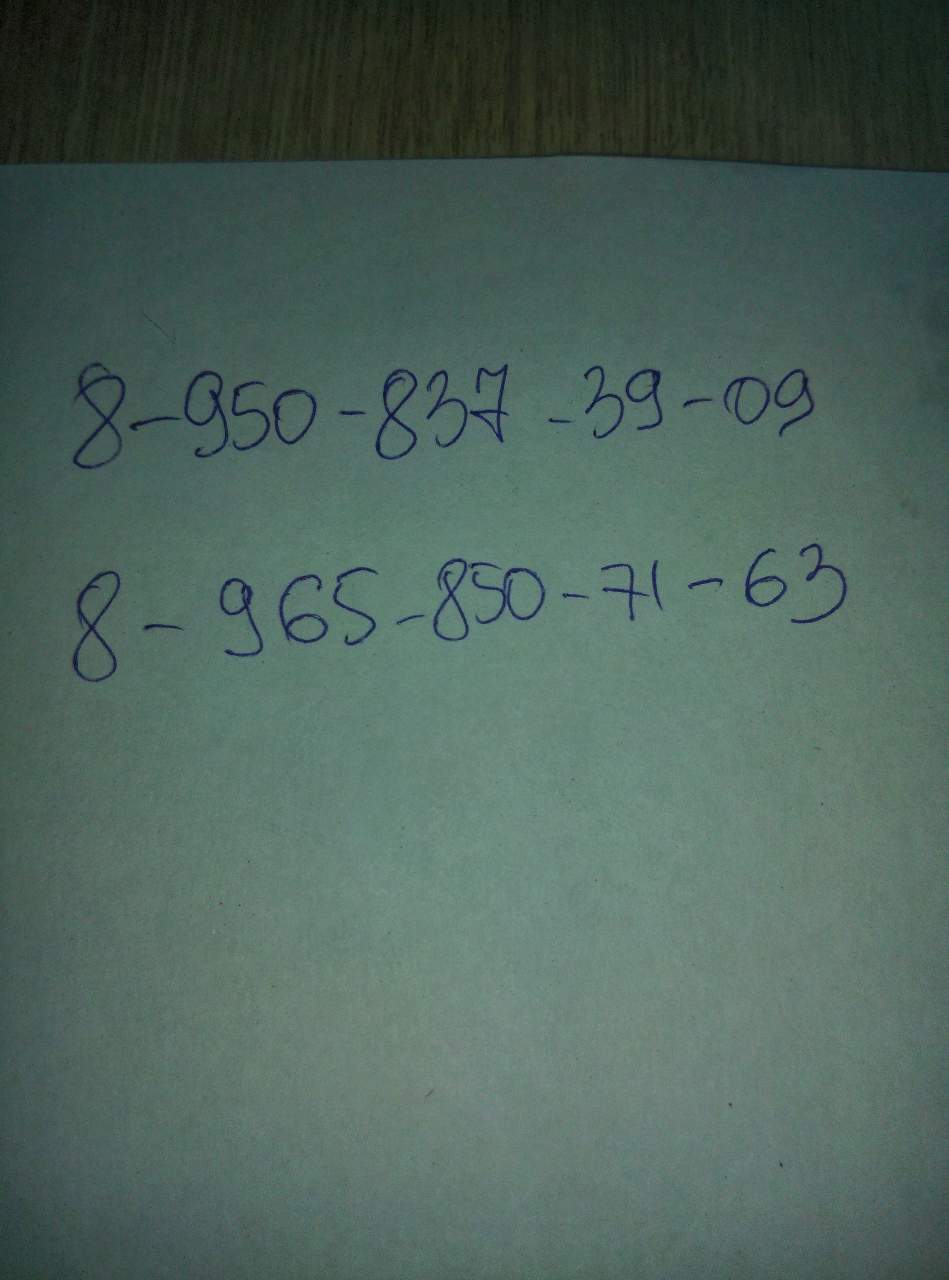 8-950-837-39-09
8-965-850-71-63